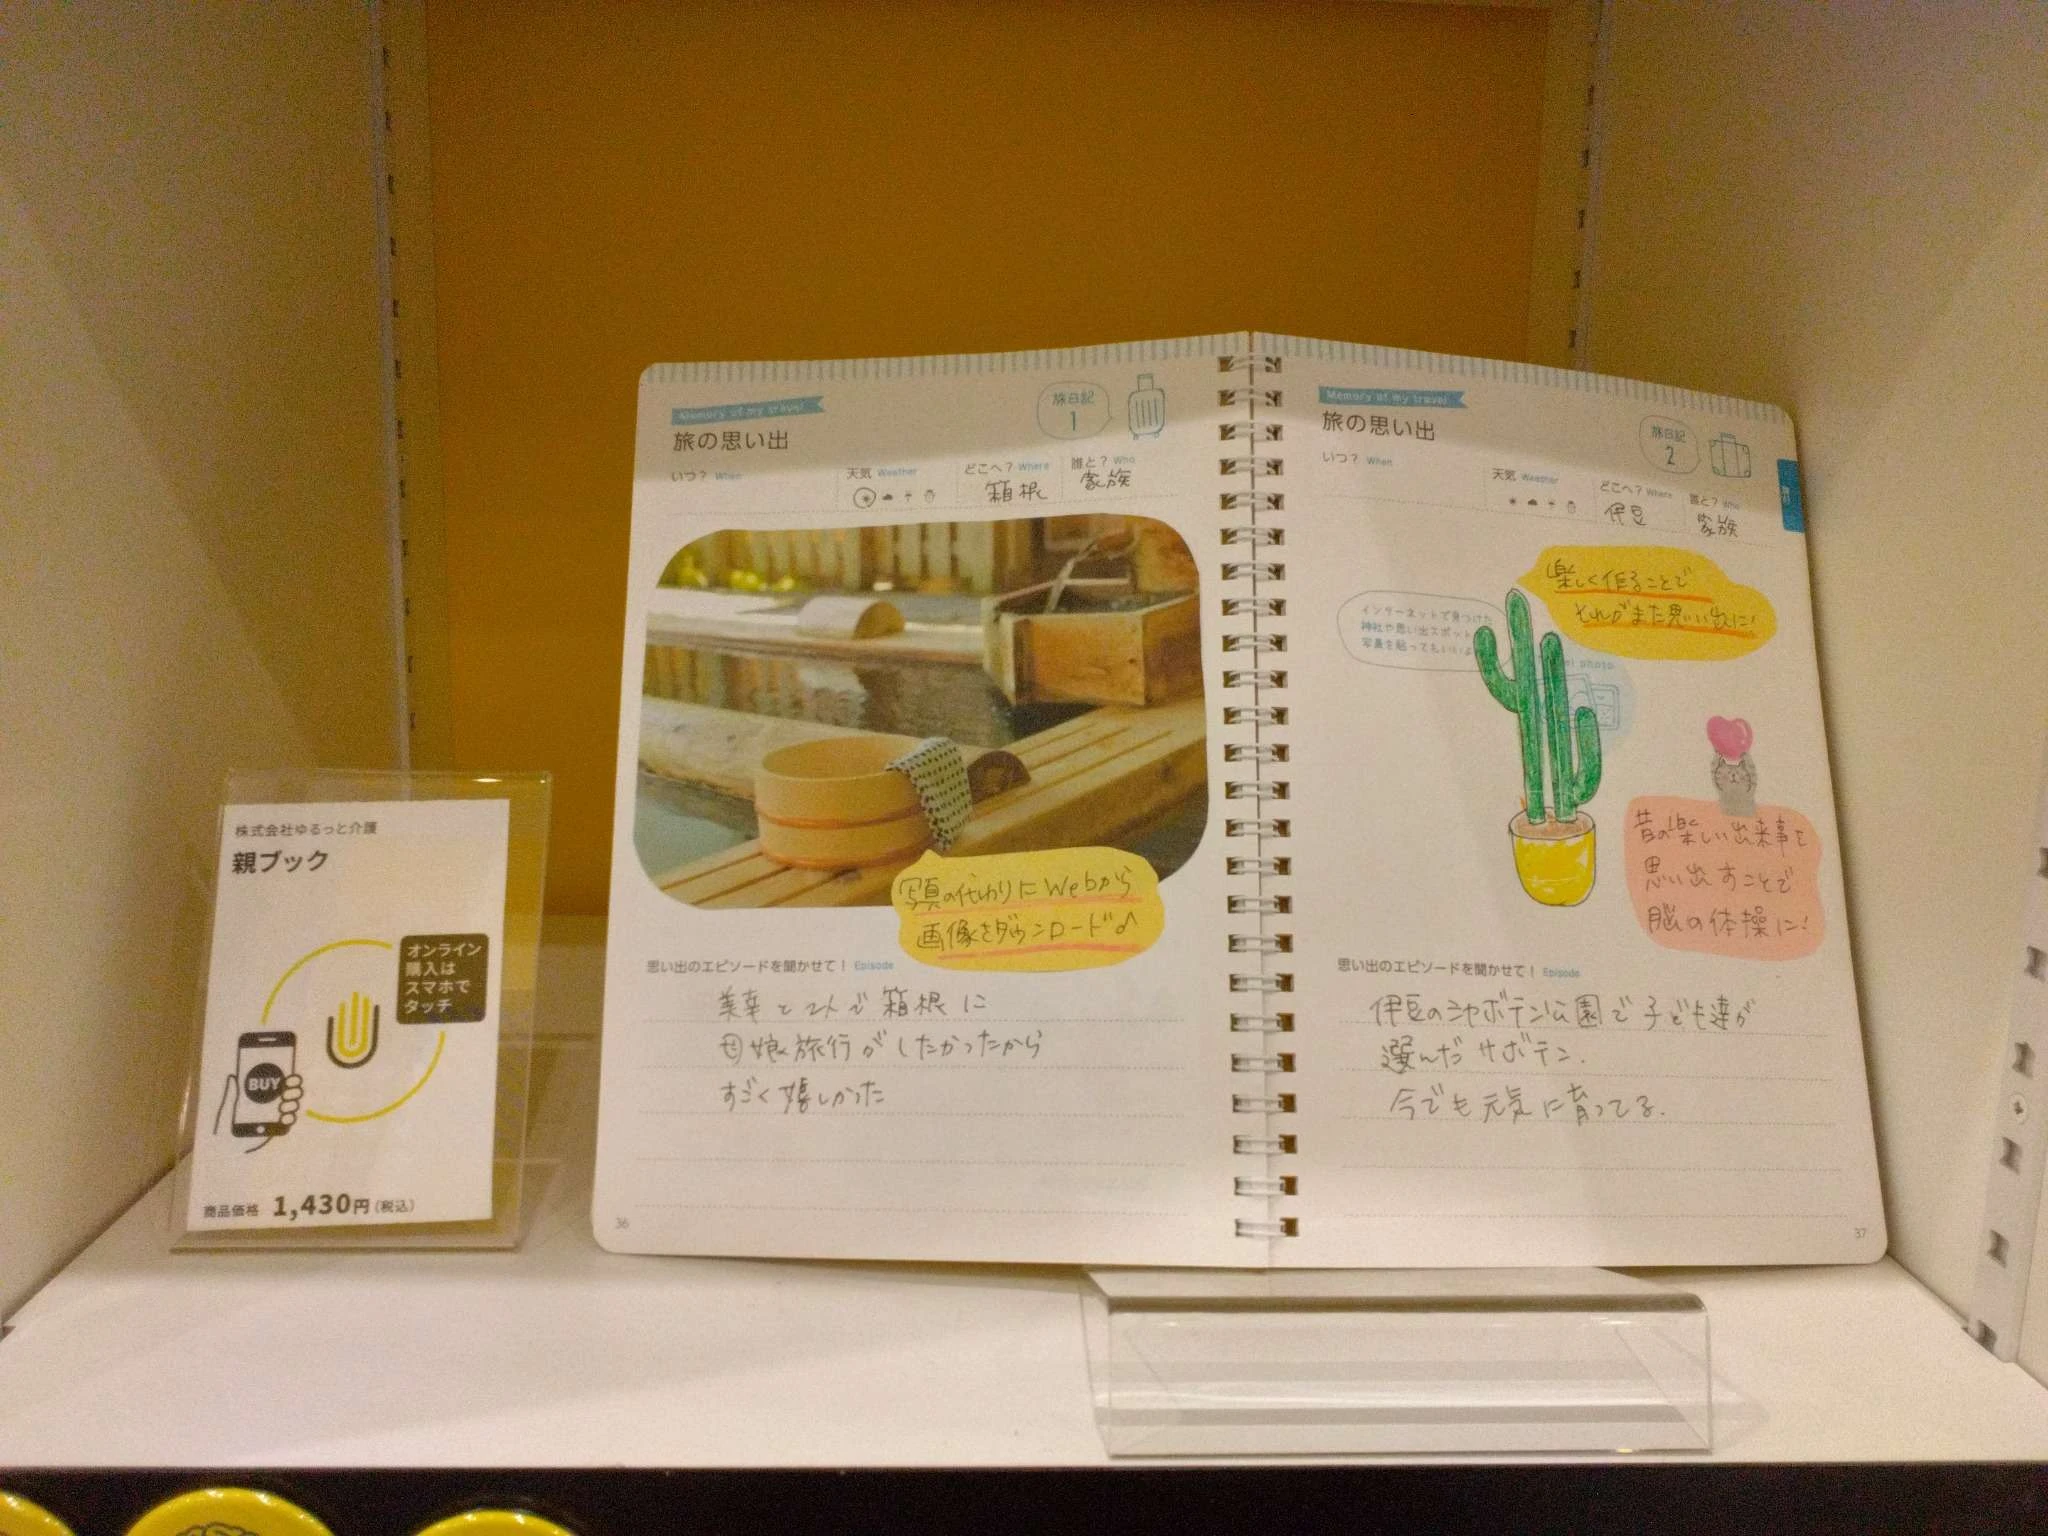 株式会社ゆるっと介護
親ブック
オンライン
購入は
スマホで
タッチ
BUY
商品価格 1,430円(税込)
Memory of my travel
旅の思い出
旅日記
1
いつ? When
天気 Weather
どこへ? Where
誰と? Who
箱根
家族
写真の代わりにWebから
画像をダウンロード♪
思い出のエピソードを聞かせて! Episode
美幸と2人で箱根に
母娘旅行がしたかったから
すごく嬉しかった
36
Memory of my travel
旅の思い出
旅日記
2
いつ? When
天気 Weather
どこへ? Where
誰と? Who
伊豆
家族
楽しく作ることで
それがまた思い出に!
インターネットで見つけた
神社や思い出スポット
写真を貼ってもいいよ
photo
昔の楽しい出来事を
思い出すことで
脳の体操に!
思い出のエピソードを聞かせて! Episode
伊豆のシャボテン公園で子ども達が
選んだサボテン.
今でも元気に育ってる.
37